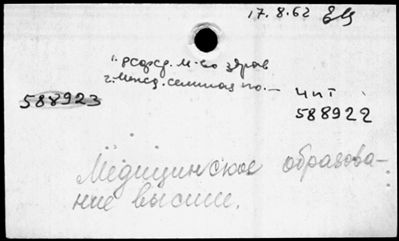 17.8.62 ЕЦ
1. РСФСР. М-во здрав
2. Межд. семинар по. —
588923
ЧИТ
588922
Медицинское образова-
ние высшее.